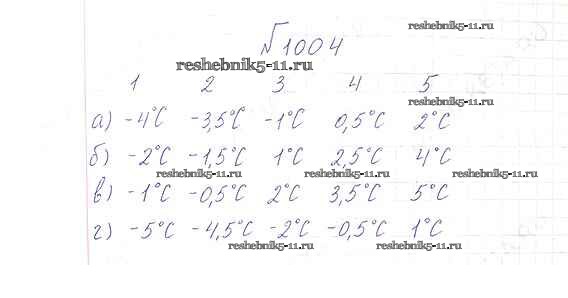 reshebnik5-11.ru
№1004
reshebnik5-11.ru
1 2 3 4 5
reshebnik5-11.ru
а) -4°С -3,5°С -1°С 0,5°С 2°С
б) -2°С -1,5°С 1°С 2,5°С 4°С
reshebnik5-11.ru reshebnik5-11.ru
в) -1°С -0,5°С 2°С 3,5°С 5°С
г) -5°С -4,5°С -2°С -0,5°С 1°С
reshebnik5-11.ru reshebnik5-11.ru